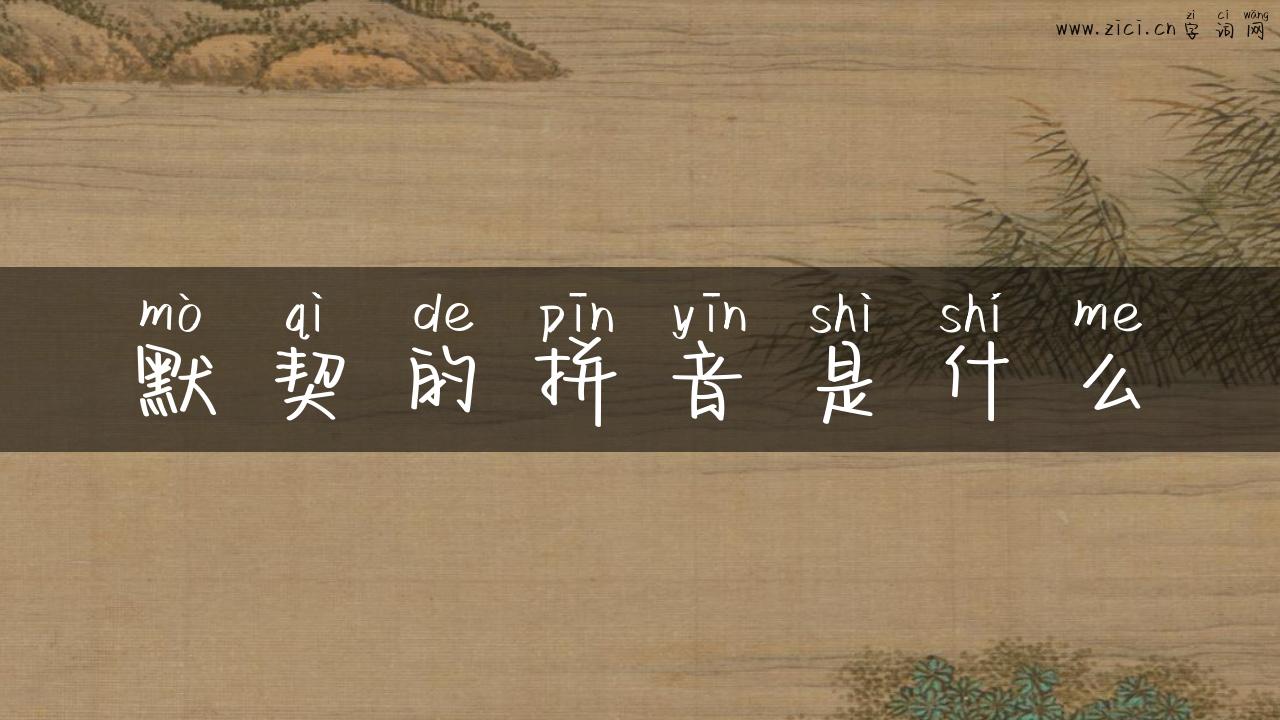 zì cí wǎng
www.zici.cn 字词网
mò qì de pīn yīn shì shí me
默契的拼音是什么